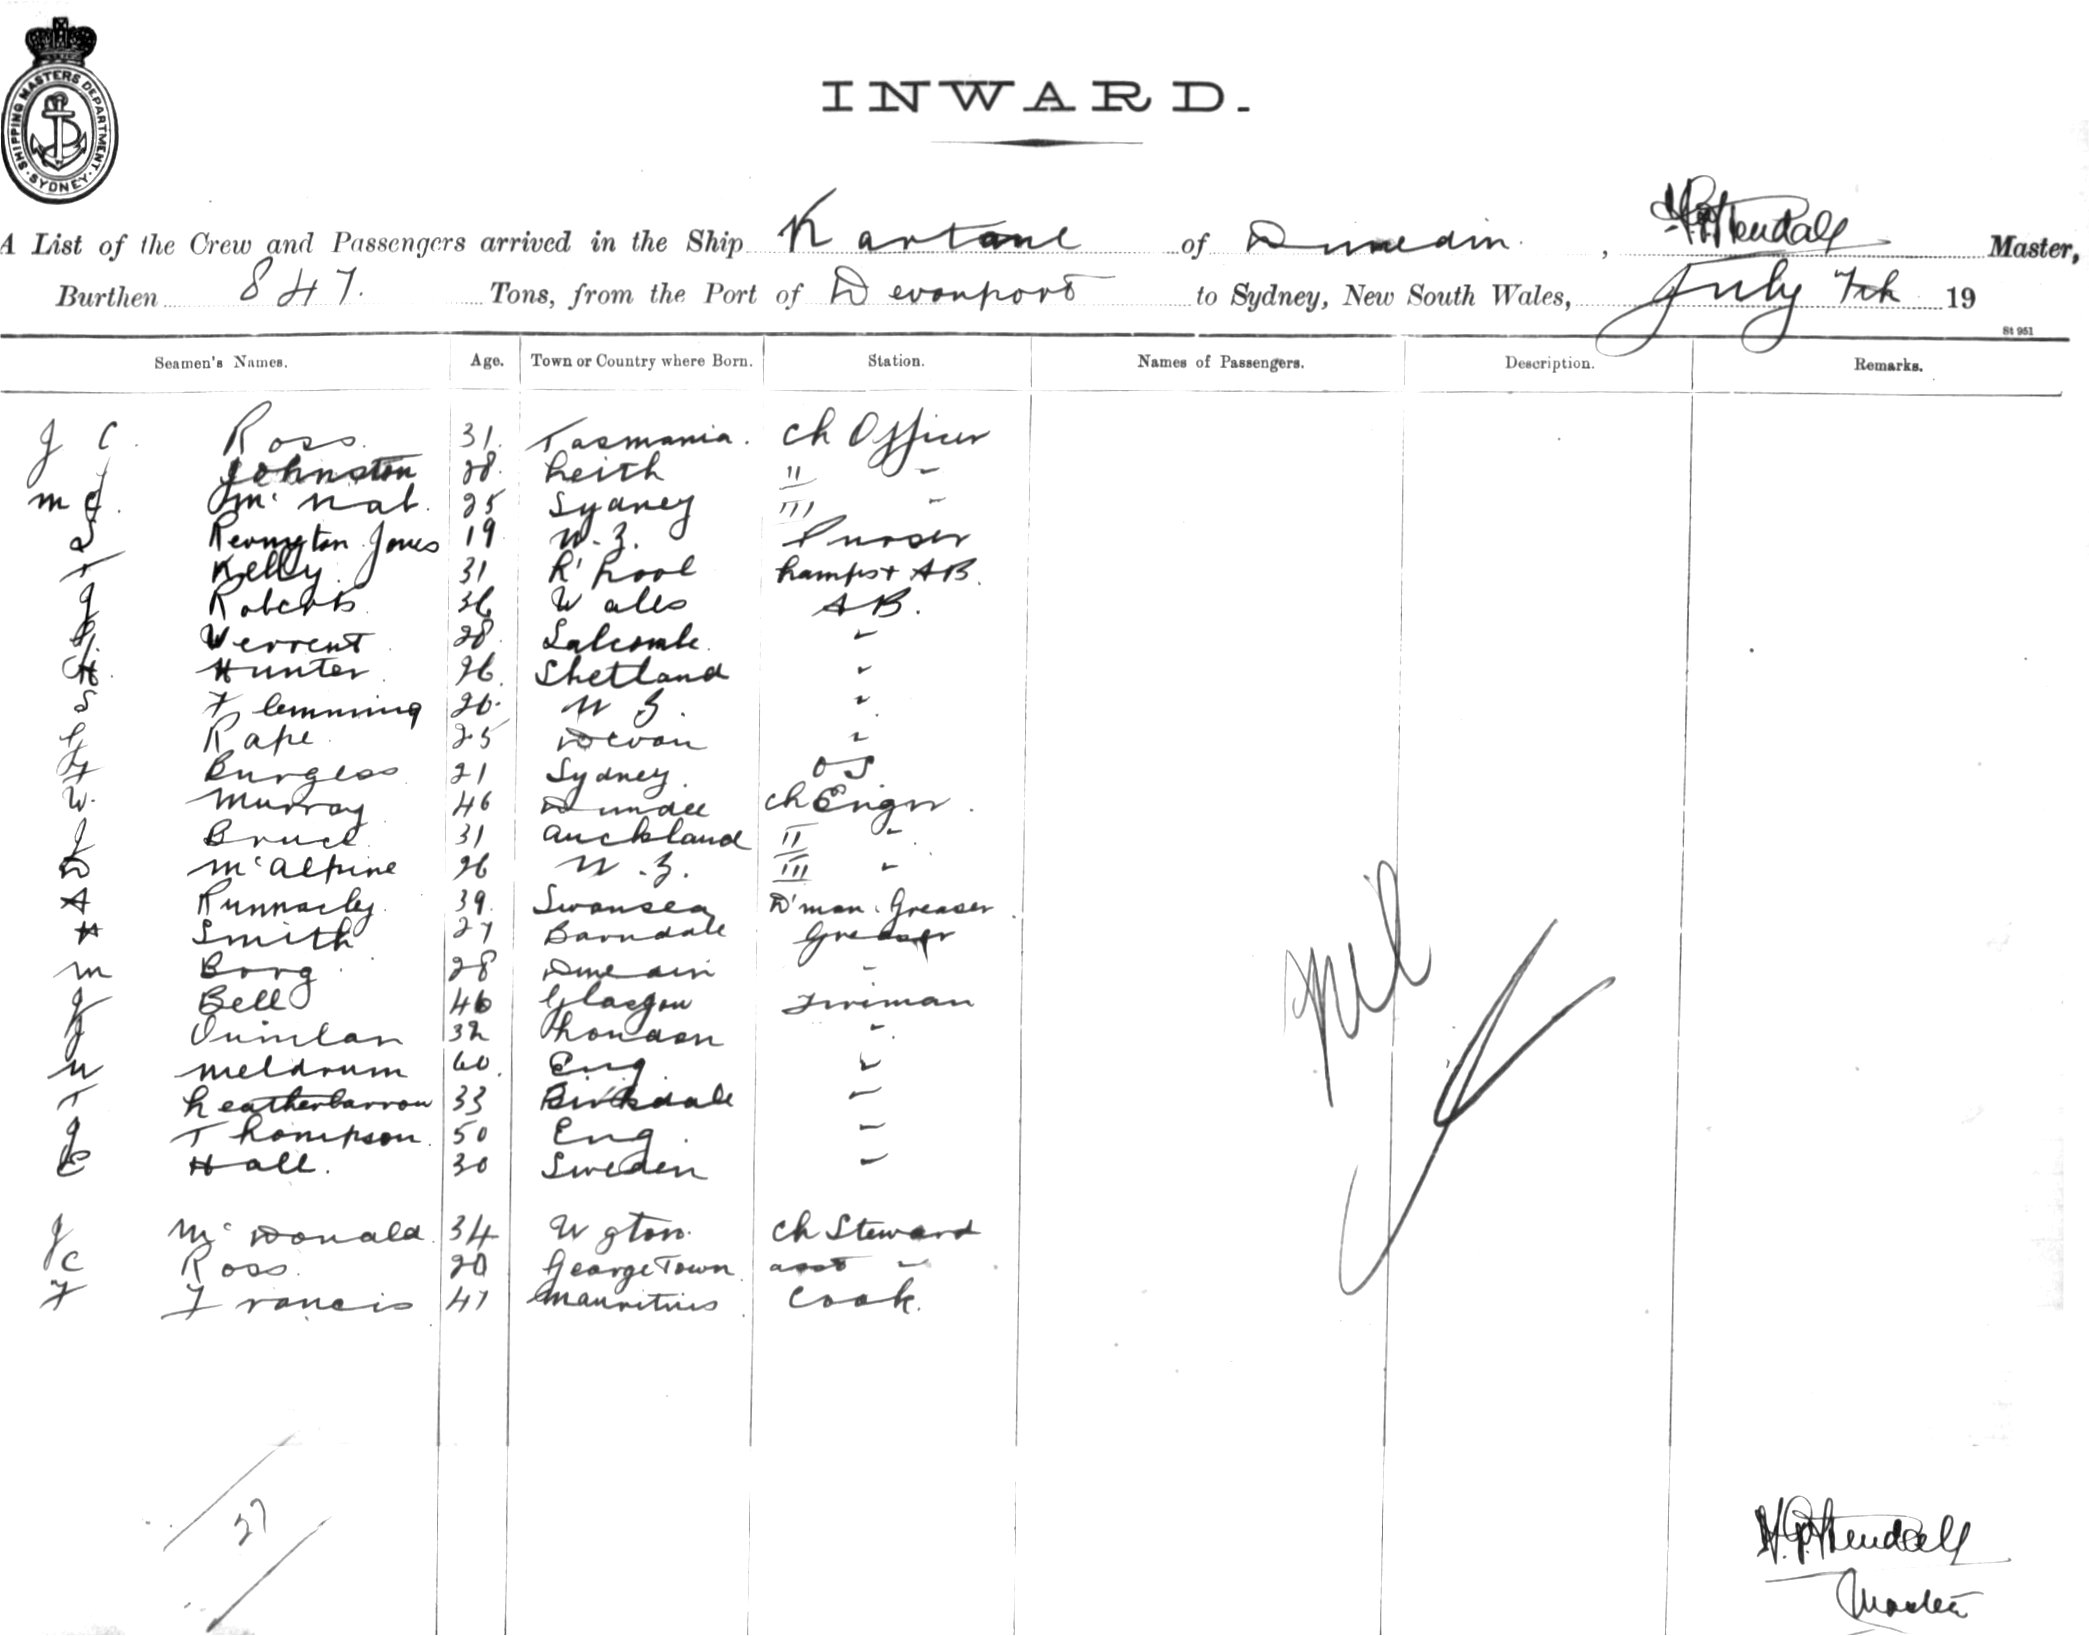 SHIPPING MASTERS DEPARTMENT. SYDNEY.
INWARD.
A List of the Crew and Passengers arrived in the Ship of Dunedin, Master,
Burthen 847. Tons, from the Port of Devonport to Sydney, New South Wales, July 7th 19
St 951
Seamen's Names. Age. Town or Country where Born. Station. Names of Passengers. Description. Remarks.
J C. Ross. 31. Tasmania. Ch Officer
J Johnston 28. Leith II "
M J. McNab. 25 Sydney III "
Jones 19 N.Z. Purser
T Kelly. 31 L'pool Lamps & AB.
J Roberts 36 Wales AB.
Werrent 28. Salcombe "
H. Hunter 26. Shetland "
S Flemming 26. N Z. "
Rape 25 Devon "
F Burgess 21 Sydney. OS
W. Murray 46 Dundee Ch Engnr.
J Bruce 31 Auckland II "
D McAlpine 26 N.Z. III "
A 39. Swansea D'man. Greaser
H Smith 27 Greaser
M Borg 28 "
J Bell 46 Glasgow Fireman
J Quinlan 32 London "
W Meldrum 60. Eng "
T Leatherbarrow 33 Birkdale "
J Thompson. 50 Eng. "
C Hall. 30 Sweden "
J McDonald. 34 Wgton. Ch Steward
J C Ross. 20 GeorgeTown asst "
F Francis 47 Mauritius Cook.
Nil
27
Master